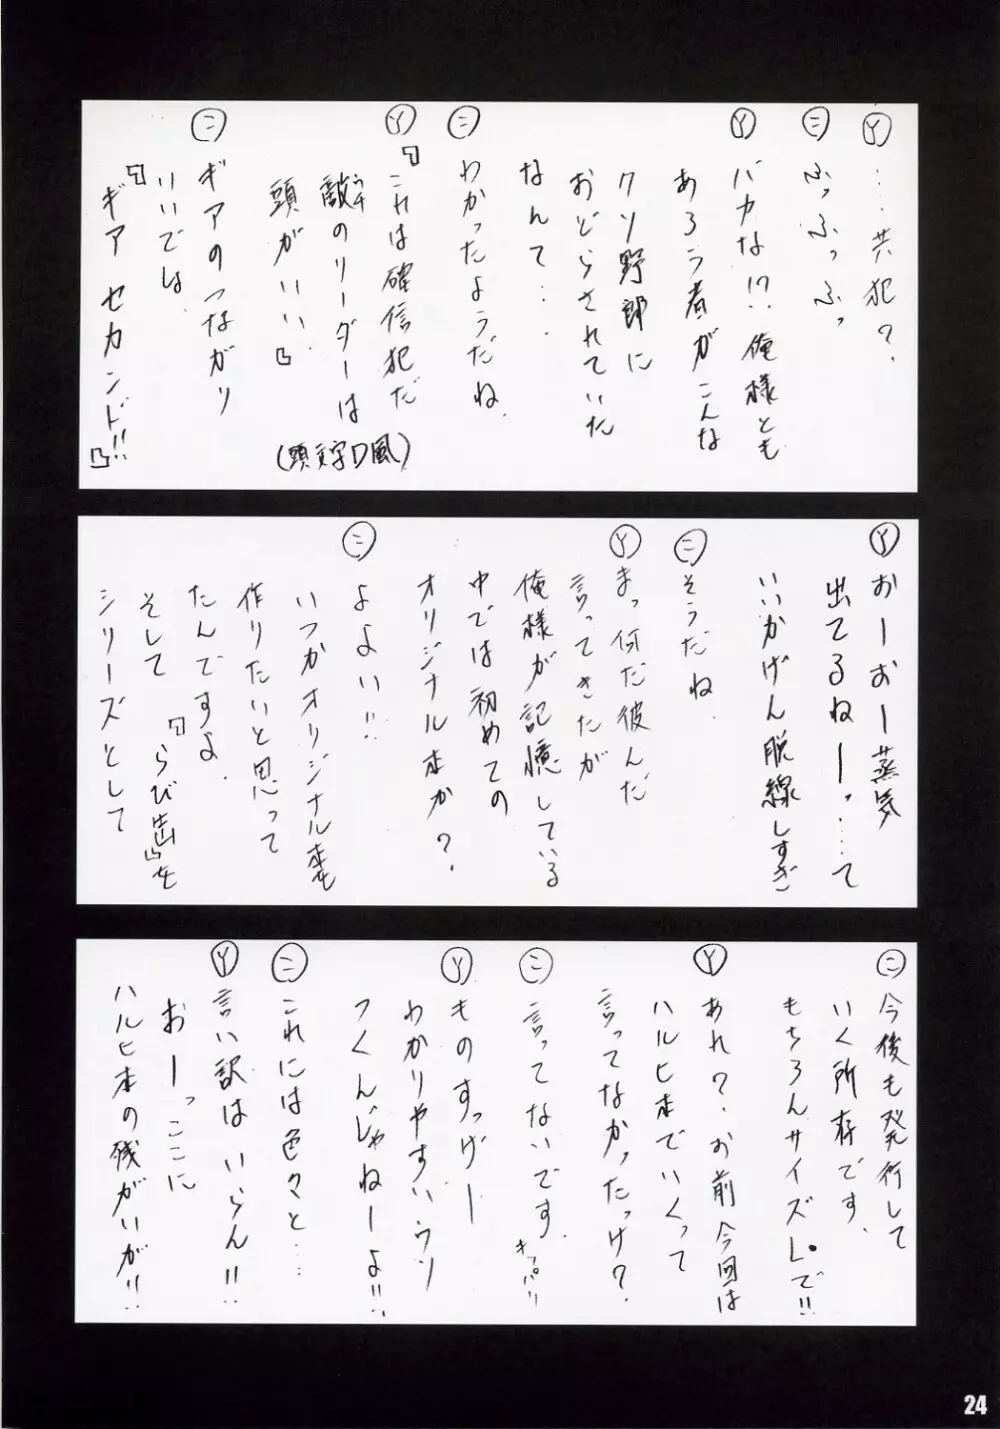 Ⓨ …共犯?
㊁ ふっふっふっ
Ⓨ バカな!? 俺様とも
あろう者がこんな
クソ野郎に
おどらされていた
なんて…
㊁ わかったようだね。
Ⓨ 『これは確信犯だ
敵のリーダーは
ウチ
頭がいい』
(頭文字D風)
㊁ ギアのつながり
いいでは
『ギア セカンド!!』
Ⓨ おーおー蒸気
出てるねーっ…て
いいかげん脱線しすぎ
㊁ そうだね。
Ⓨ まっ何だ彼んだ
言ってきたが
俺様が記憶している
中では初めての
オリジナル本か?
㊁ よよい!!
いつかオリジナル本を
作りたいと思って
たんですよ。
そして『らび出』を
シリーズとして
㊁ 今後も発行して
いく所存です。
もちろんサイズL●で!!
Ⓨ あれ?お前今回は
ハルヒ本でいくって
言ってなかったっけ?
㊁ 言ってないです。
キッパリ
Ⓨ ものすっげー
わかりやすいウソ
つくんじゃねーよ!!
㊁ これには色々と…
Ⓨ 言い訳はいらん!!
おーっここに
ハルヒ本の残がいが!!
24